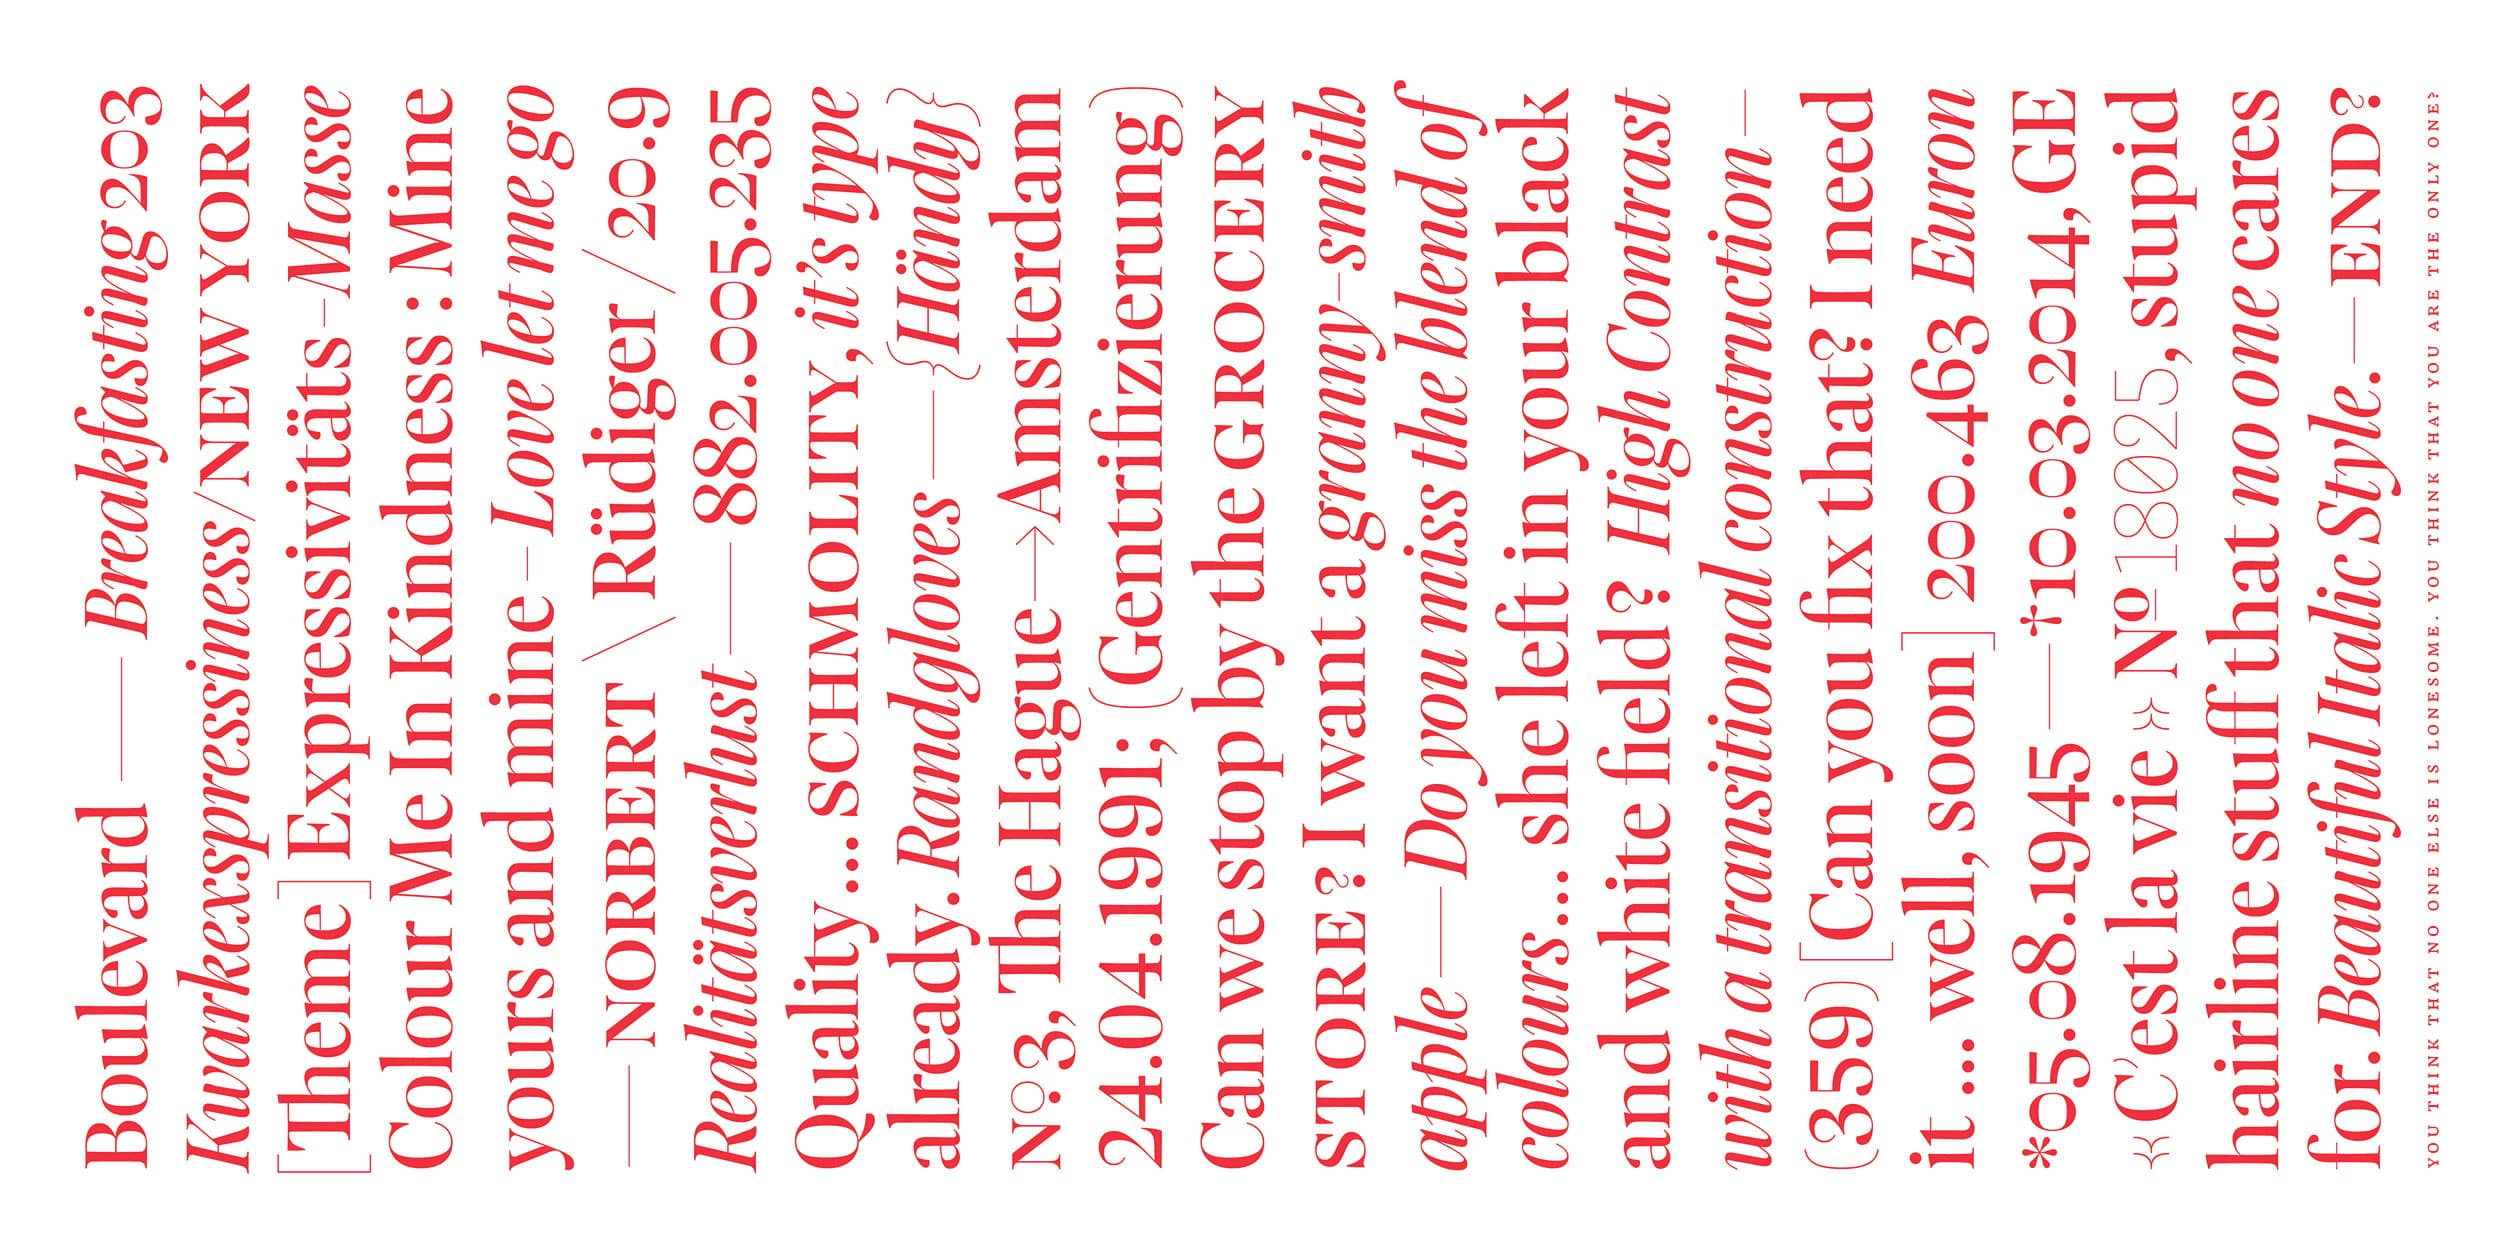 Boulevard — Breakfasting 203
Knarkexpressiness/NEW YORK
[Theme] Expressivitäts–Masse
Colour Me In Kindness :Mine
yours and mine – Love let me go
— NORBERT / Rüdiger / 20:9
Realitätsverlust — 882.005.235
Quality. … SCHMOLITY, it's type
already. Readygloves — {Händly}
N<u>o</u>:3, The Hague → Amsterdam
24.04.1991; (Gentrifizierung)
Can we stop by the GROCERY
STORE? I want a granny–smith
apple — Dynamiss the blend of
colours … she left in your black
and white field? High Contrast
with a transnsitional construction —
(359) [Can you fix that? I need
it … well, soon] 200.463 Euro
*05.08.1945 — †10.03.2014 GE
»(C'est la vie» Nº 18025, stupid
hairline stuff that no one cares
for. Beautifull Italic Style. — END?
YOU THINK THAT NO ONE ELSE IS LONESOME. YOU THINK THAT YOU ARE THE ONLY ONE?